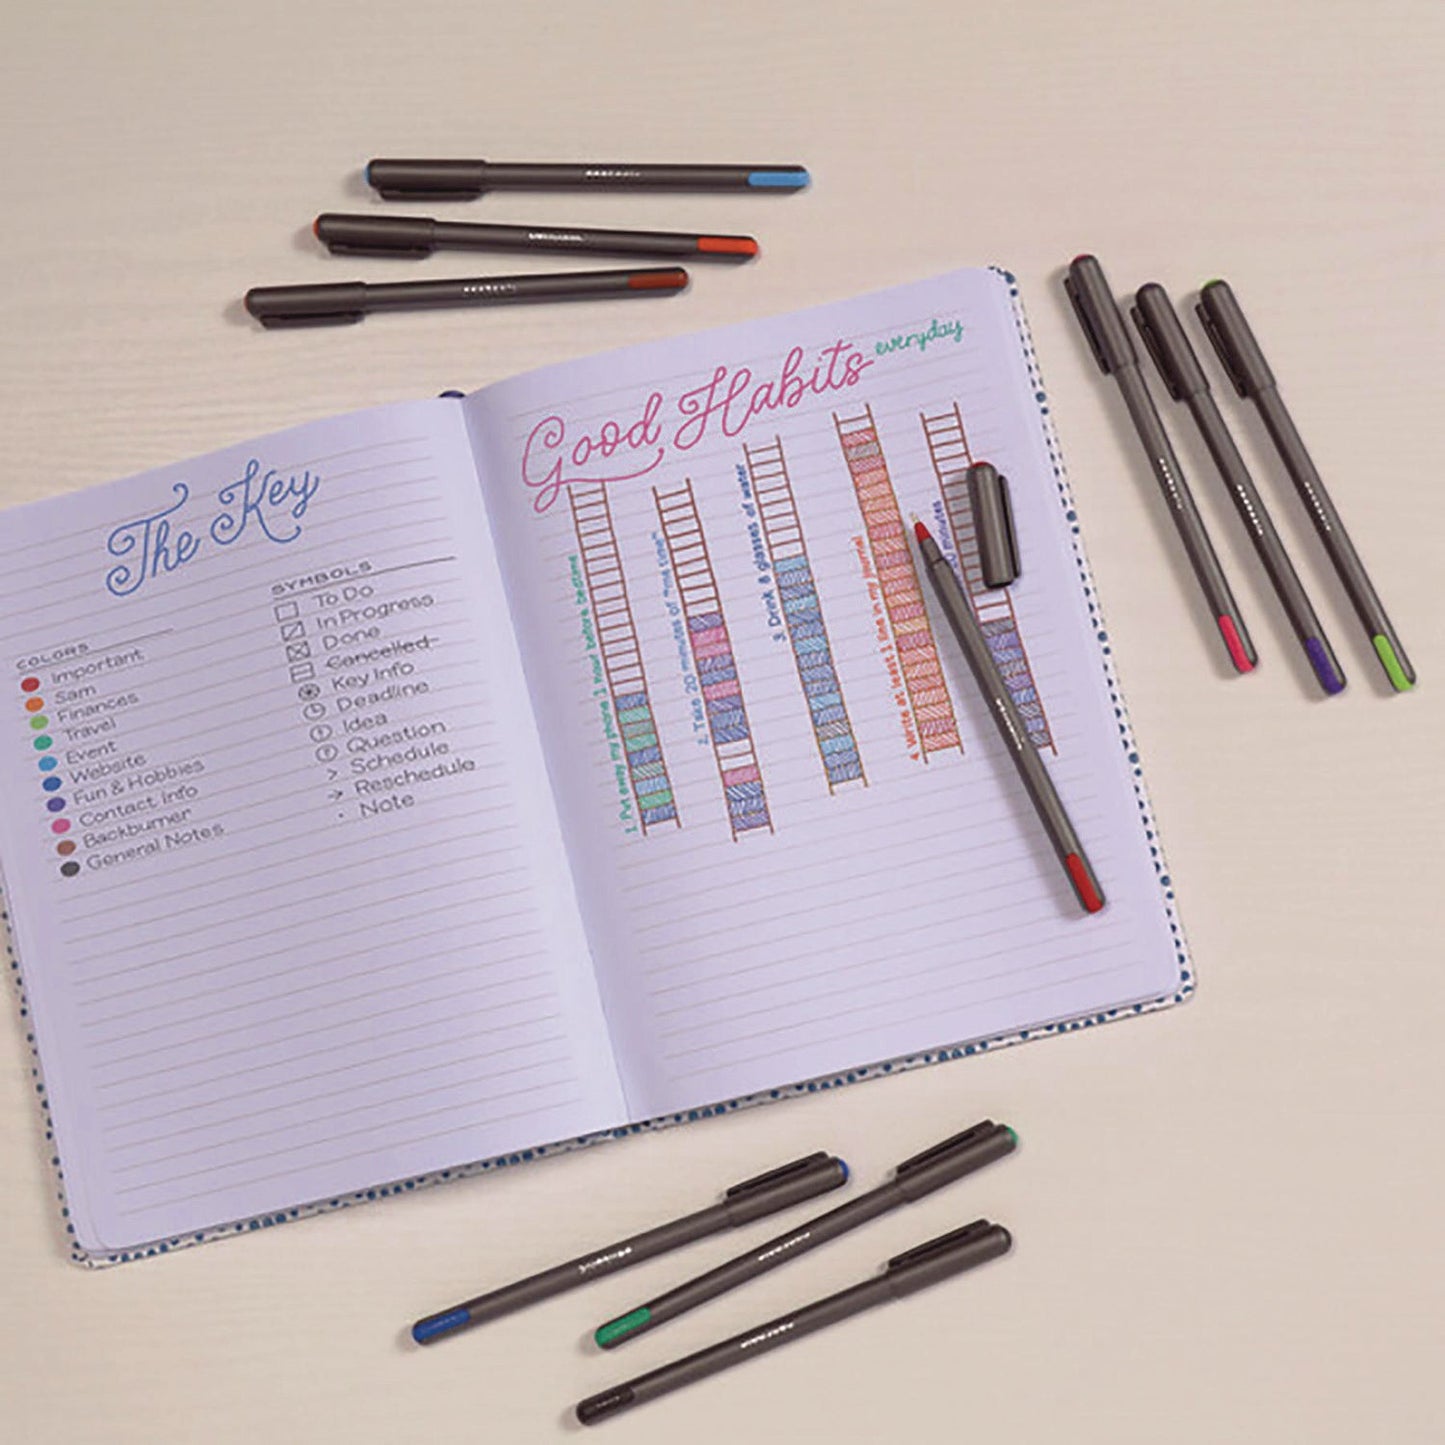 The Key
COLORS
Important
Sam
Finances
Travel
Event
Website
Fun & Hobbies
Contact Info
Backburner
General Notes
SYMBOLS
To Do
In Progress
Done
Cancelled
Key Info
Deadline
Idea
Question
Schedule
Reschedule
Note
Good Habits everyday
1. Put away my phone 1 hour before bedtime
2. Take 20 minutes of "me time"
3. Drink 8 glasses of water
4. Write at least 1 line in my journal
20 minutes